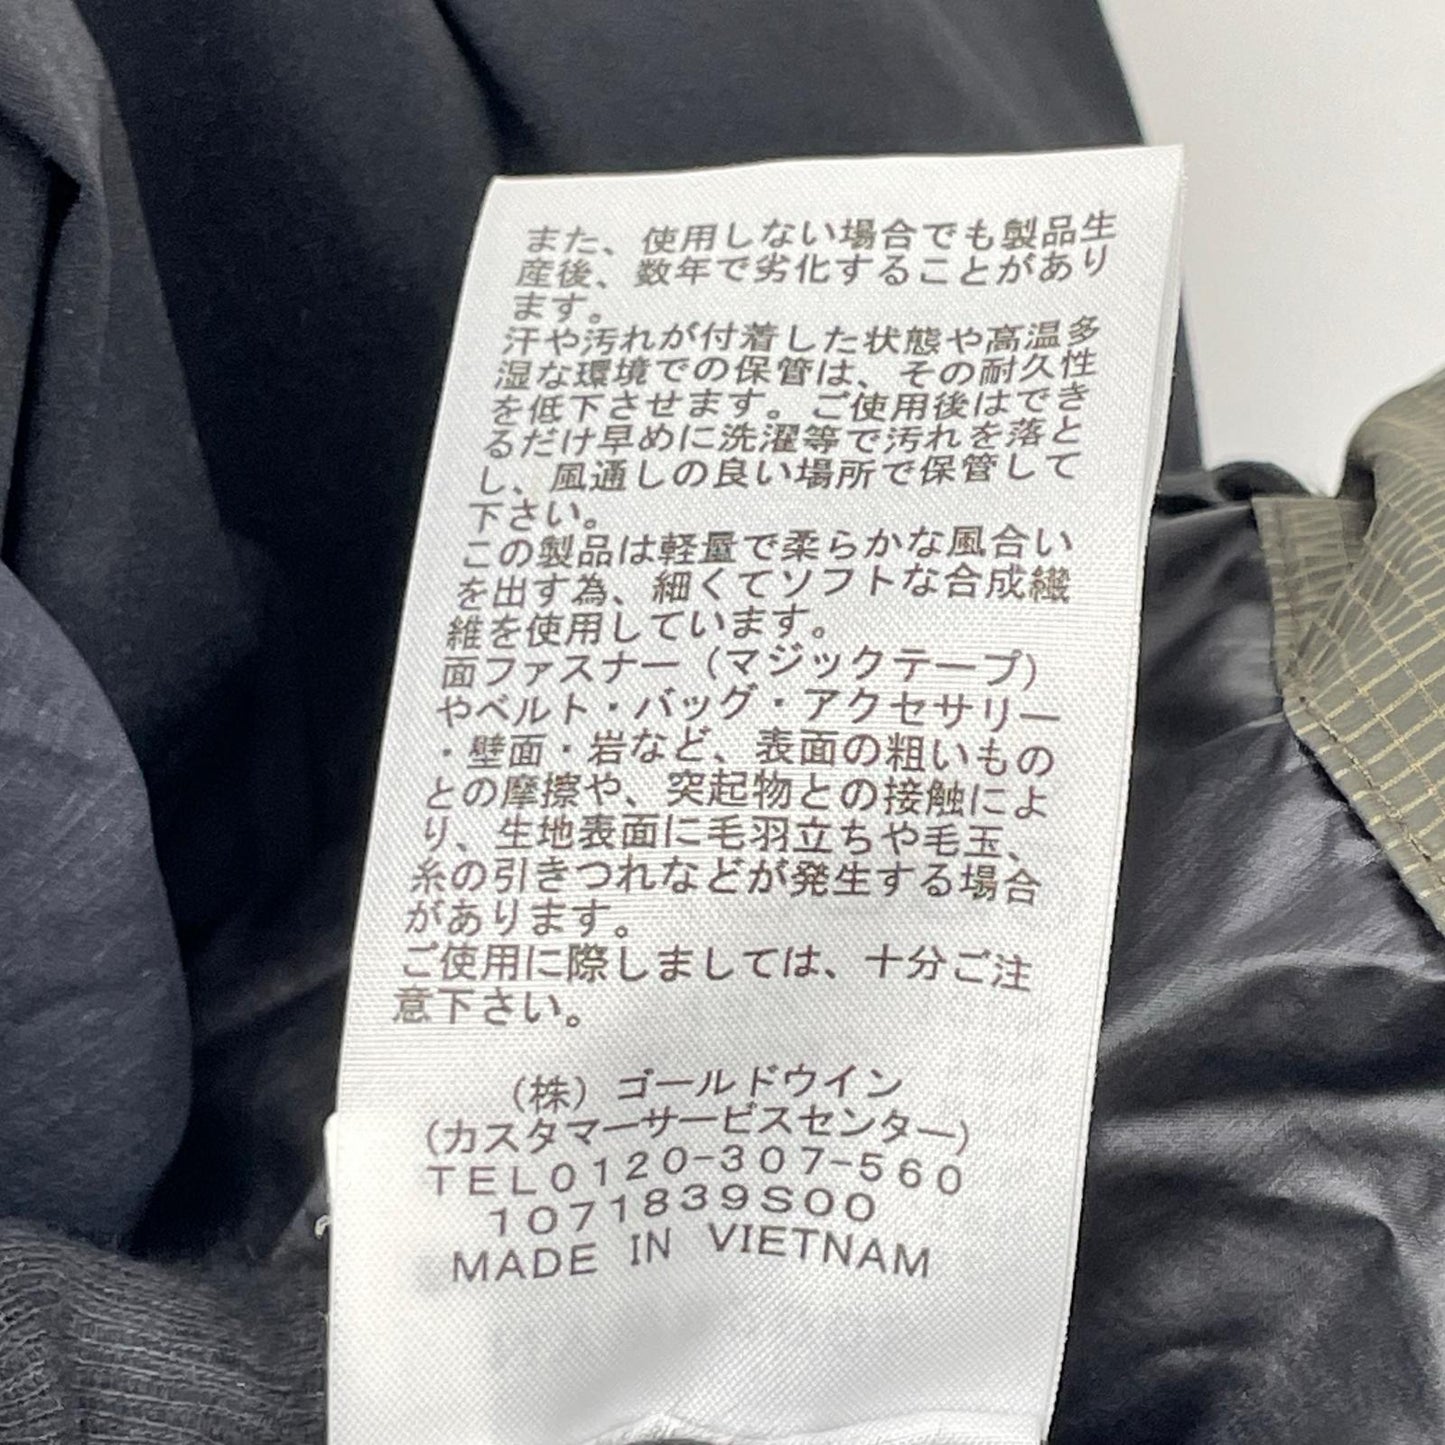 また、使用しない場合でも製品生
産後、数年で劣化することがあり
ます。
汗や汚れが付着した状態や高温多
湿な環境での保管は、その耐久性
を低下させます。ご使用後はでき
るだけ早めに洗濯等で汚れを落と
し、風通しの良い場所で保管して
下さい。
この製品は軽量で柔らかな風合い
を出す為、細くてソフトな合成繊
維を使用しています。
面ファスナー（マジックテープ）
やベルト・バッグ・アクセサリー
・壁面・岩など、表面の粗いもの
との摩擦や、突起物との接触によ
り、生地表面に毛羽立ちや毛玉、
糸の引きつれなどが発生する場合
があります。
ご使用に際しましては、十分ご注
意下さい。
（株）ゴールドウイン
(カスタマーサービスセンター)
TEL0120-307-560
1071839S00
MADE IN VIETNAM